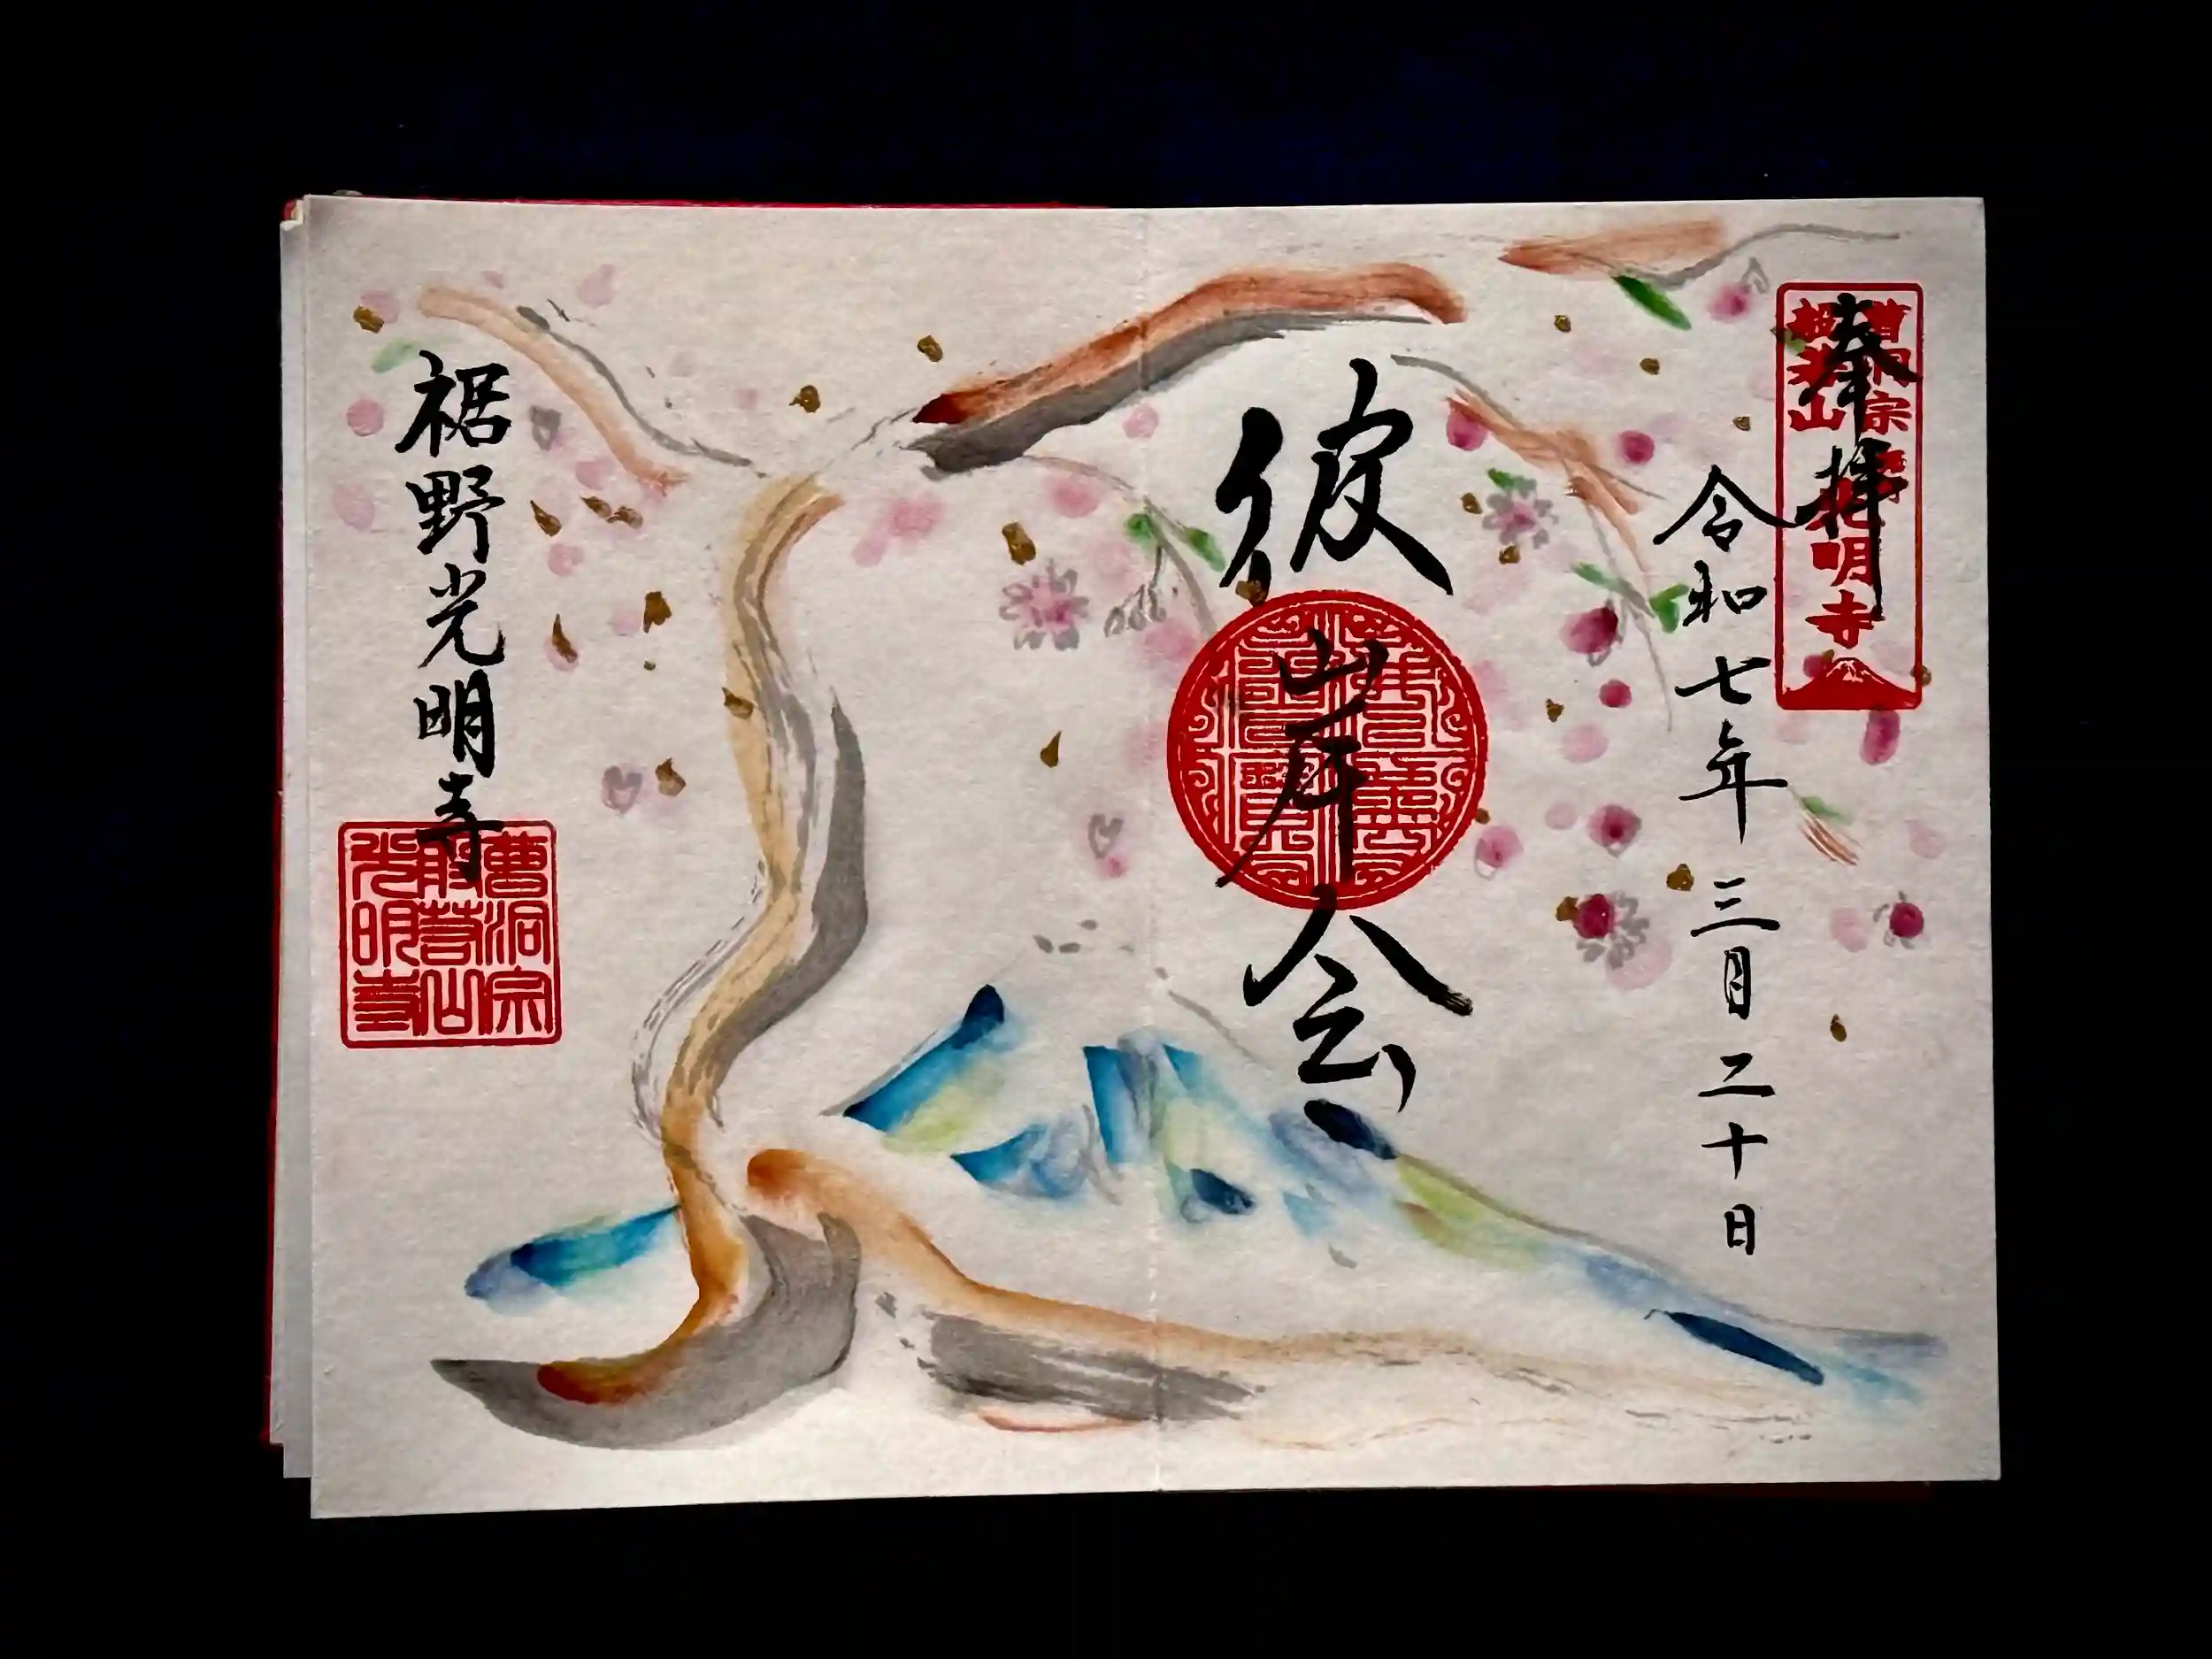 奉拝
曹洞宗
般若山
光明寺
令和七年三月二十日
彼岸会
裾野光明寺
曹洞宗
般若山
光明寺